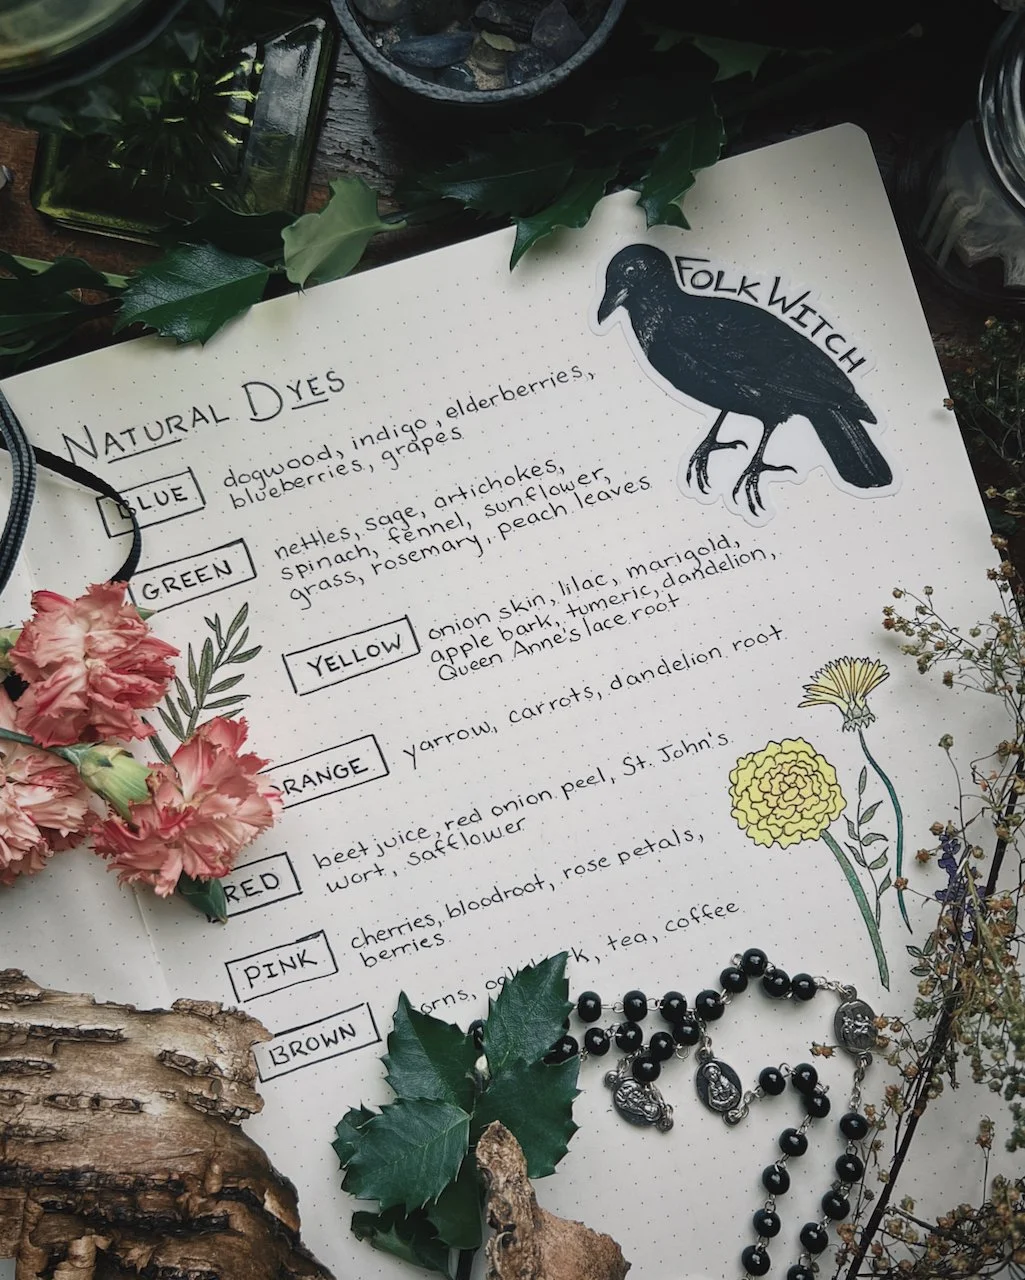 FOLK WITCH
NATURAL DYES
BLUE
dogwood, indigo, elderberries,
blueberries, grapes
GREEN
nettles, sage, artichokes,
spinach, fennel, sunflower,
grass, rosemary, peach leaves
YELLOW
onion skin, lilac, marigold,
apple bark, tumeric, dandelion,
Queen Anne's lace root
ORANGE
yarrow, carrots, dandelion root
RED
beet juice, red onion peel, St. John's
wort, safflower
PINK
cherries, bloodroot, rose petals,
berries
BROWN
tea, coffee